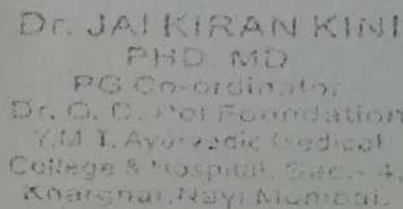 Dr. JAI KIRAN KINI
PHD. MD
PG Co-ordinator
Dr. G. D. Pol Foundation
Y.M.T. Ayurvedic Medical
College & Hospital, Sec.- 4,
Kharghar, Navi Mumbai.